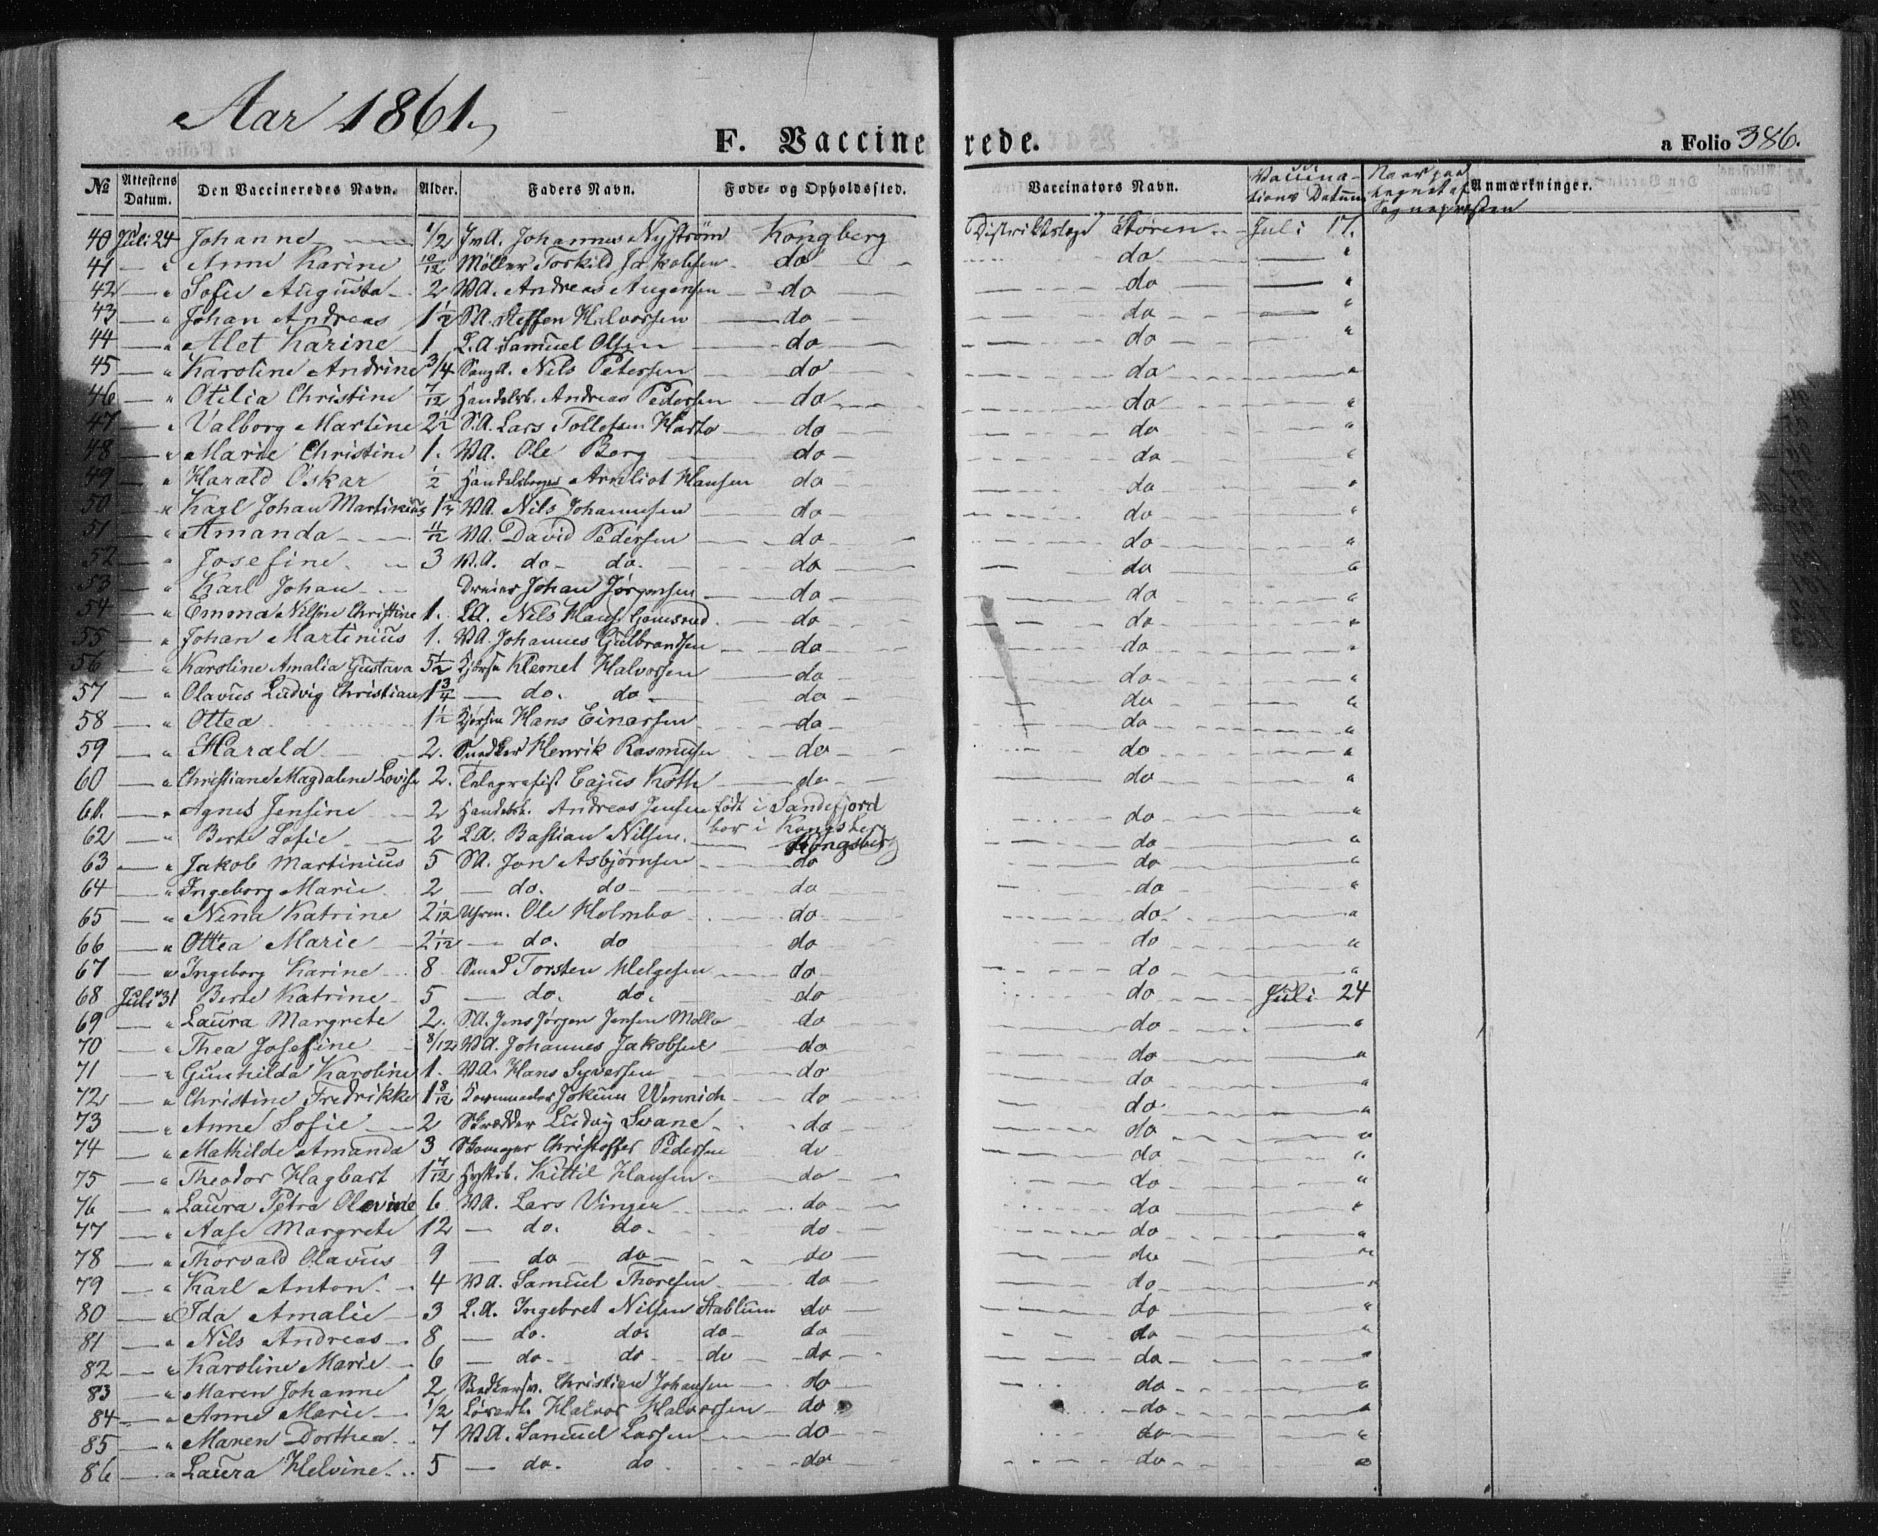 Aar 1861.
F. Vaccinerede. a Folio 386.
№ Attestens Datum. Den Vaccineredes Navn. Alder. Faders Navn. Føde- og Opholdssted. Vaccinators Navn. Vaccinations Datum Naar paategnet af Sognepræsten Anmærkninger.
40 Juli 24 Johanne 1/2 Johannes Nyström Kongberg Distriktslæge Støren Juli 17.
41 — " Anne Karine 10/12 Møller Torkild Jakobsen do do — "
42 — " Sofie Augusta 2 VA. Andreas Augensen do do — "
43 — " Johan Andreas 1 1/2 SA. Steffen Halvorsen do do — "
44 — " Alet Karine 1. L.A. Samuel Olsen do do "
45 — " Karoline Andrine 3/4 Nils Petersen do do "
46 — " Otilia Christine 7/12 Handelsb. Andreas Pedersen do do "
47 — " Valborg Martine 2 1/2 S.A. Lars Tollefsen do do "
48 — " Marie Christine 1. VA. Ole Berg do do "
49 " Harald Oskar 1/2 Hansen do do "
50 — " Karl Johan Martinius 1 1/2 VA. Nils Johannesen do do "
51 — " Amanda 11/12 VA. David Pedersen do do "
52 " Josefine 3 V.A. do do. do do "
53 " Karl Johan Dreier Johan Jørgensen do do "
54 — " Emma Nilsine Christine 1. LA. Nils Hans. Gomsrud do do "
55 — " Johan Martinius 1. VA. Johannes Gulbrandsen do do "
56 — " Karoline Amalia Gustava 5 1/2 Klemet Halvorsen do do "
57 — " Olavus Ludvig Christian 1 3/4 — do. do do do "
58 — " Ottea 1 1/2 Hans Einarsen do do "
59 — " Harald 2. Snedker Henrik Rasmusen do do "
60 — " Christiane Magdalene Lovise 2. Telegrafist Cajus Koth do do "
61. — " Agnes Jensine 2 Handelsb. Andreas Jensen født i Sandefjord do "
bor i Kongsberg
62 — " Berte Sofie 2 L.A. Bastian Nilsen. Kongsberg do "
63 — " Jakob Martinius 5 SA. Jon Asbjørnsen do do "
64 — " Ingeborg Marie 2 — do. do do do "
65 — " Nina Katrine 2 1/12 Uhrm. Ole Holmbo do do "
66 — " Ottea Marie 2 1/12 — do. do do do "
67 — " Ingeborg Karine 8 Smed Torsten Helgesen do do "
68 Juli 31 Berte Katrine 5 — do. do. do do Juli 24
69 — " Laura Margrete 2. SA. Jens Jørgen Jensen Mollo do do "
70 — " Thea Josefine 8/12 VA. Johannes Jakobsen do do "
71 — " Gunhilda Karoline 1. VA. Hans Syversen do do "
72 — " Christine Fredrikke 1 8/12 Jokum Winnich do do "
73 — " Anne Sofie 2 Skrædder Ludvig Svane do do "
74 — " Mathilde Amanda 3 Skomager Christoffer Pedersen do do "
75 — " Theodor Hagbart 1 7/12 Kittil Hansen do do "
76 — " Laura Petra Olevine 6 VA. Lars Vingen do do "
77 — " Aase Margrete 12 — do. do. do do "
78 — " Thorvald Olavus 9 — do do do do "
79 — " Karl Anton 4 VA. Samuel Thoresen do do "
80 — " Ida Amalie 3 L.A. Ingebret Nilsen Stablum do do "
81 — " Nils Andreas 8 — do. do. do do do "
82 — " Karoline Marie 6 — do do do do do "
83 — " Maren Johanne 2 Snedkersv. Christian Johansen do do "
84 — " Anne Marie 1/2 Halvor Halvorsen do do "
85 — " Maren Dorthea 7 VA. Samuel Larsen do do "
86 — " Laura Helvine 5 — do. do do do "